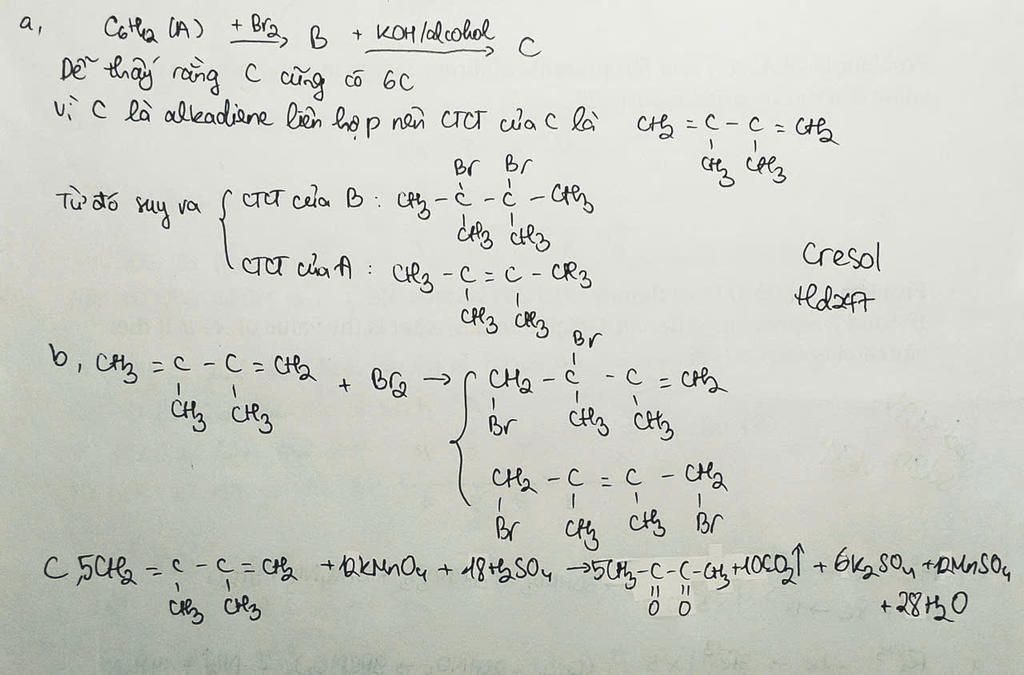 a, C6H12 (A) + Br2 → B + KOH/alcohol → C
Dễ thấy rằng C cũng có 6C
Vì C là alkadiene liên hợp nên CTCT của C là CH2 = C - C = CH2
CH3 CH3
Br Br
Từ đó suy ra { CTCT của B : CH3 - C - C - CH3
CH3 CH3
CTCT của A : CH3 - C = C - CH3
CH3 CH3
Cresol
Hdxft
Br
b, CH3 = C - C = CH2 + Br2 → { CH2 - C - C = CH2
CH3 CH3 Br CH3 CH3
CH2 - C = C - CH2
Br CH3 CH3 Br
C, 5CH2 = C - C = CH2 + 12KMnO4 + 18H2SO4 → 5CH3 - C - C - CH3 + 10CO2↑ + 6K2SO4 + 12MnSO4
CH3 CH3 O O + 28H2O